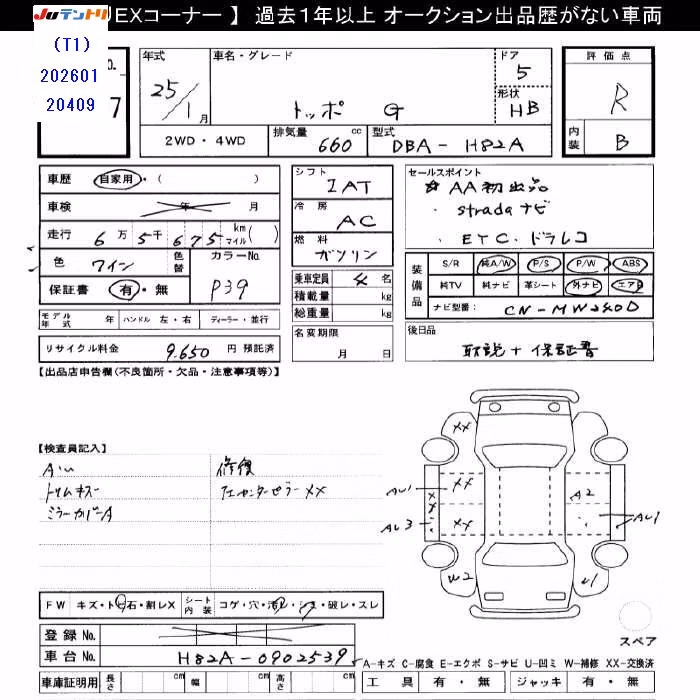 EXコーナー 】 過去１年以上 オークション出品歴がない車両
JUテントリ
(T1)
202601
20409
o.
7
年式
25/1月
車名・グレード
トッポ G
ドア
5
形状
HB
2WD・4WD
排気量
660 cc
型式
DBA - H82A
評価点
R
内装
B
車歴
自家用・( )
車検
年 月
走行
6万5千675 km マイル( )
色
ワイン
色替
カラーNo.
P39
保証書
有・無
モデル年式 年
ハンドル 左・右
ディーラー・並行
リサイクル料金 9.650 円 預託済
シフト
IAT
冷房
AC
燃料
ガソリン
乗車定員 4 名
積載量 kg
総重量 kg
名変期限
月 日
セールスポイント
☆ AA初出品
・stradaナビ
・ETC・ドラレコ
装備品
S/R 純A/W P/S P/W ABS
純TV 純ナビ 革シート 外ナビ エアB
ナビ型番: CN-MW240D
後日品
取説+保証書
【出品店申告欄(不良箇所・欠品・注意事項等)】
【検査員記入】
トリムキズ
ミラーカバーA
修復
センターピラー XX
XX
XX
XX
AU1
AU3
A2
AU1
W2
U1
スペア
FW
キズ・トビ石・割レX
シート内装
コゲ・穴・汚レ・シミ・破レ・スレ
登録 No.
車台 No.
H82A-0902539
車庫証明用
長さ cm
幅 cm
高さ cm
A-キズ C-腐食 E-エクボ S-サビ U-凹ミ W-補修 XX-交換済
工具 有・無
ジャッキ 有・無